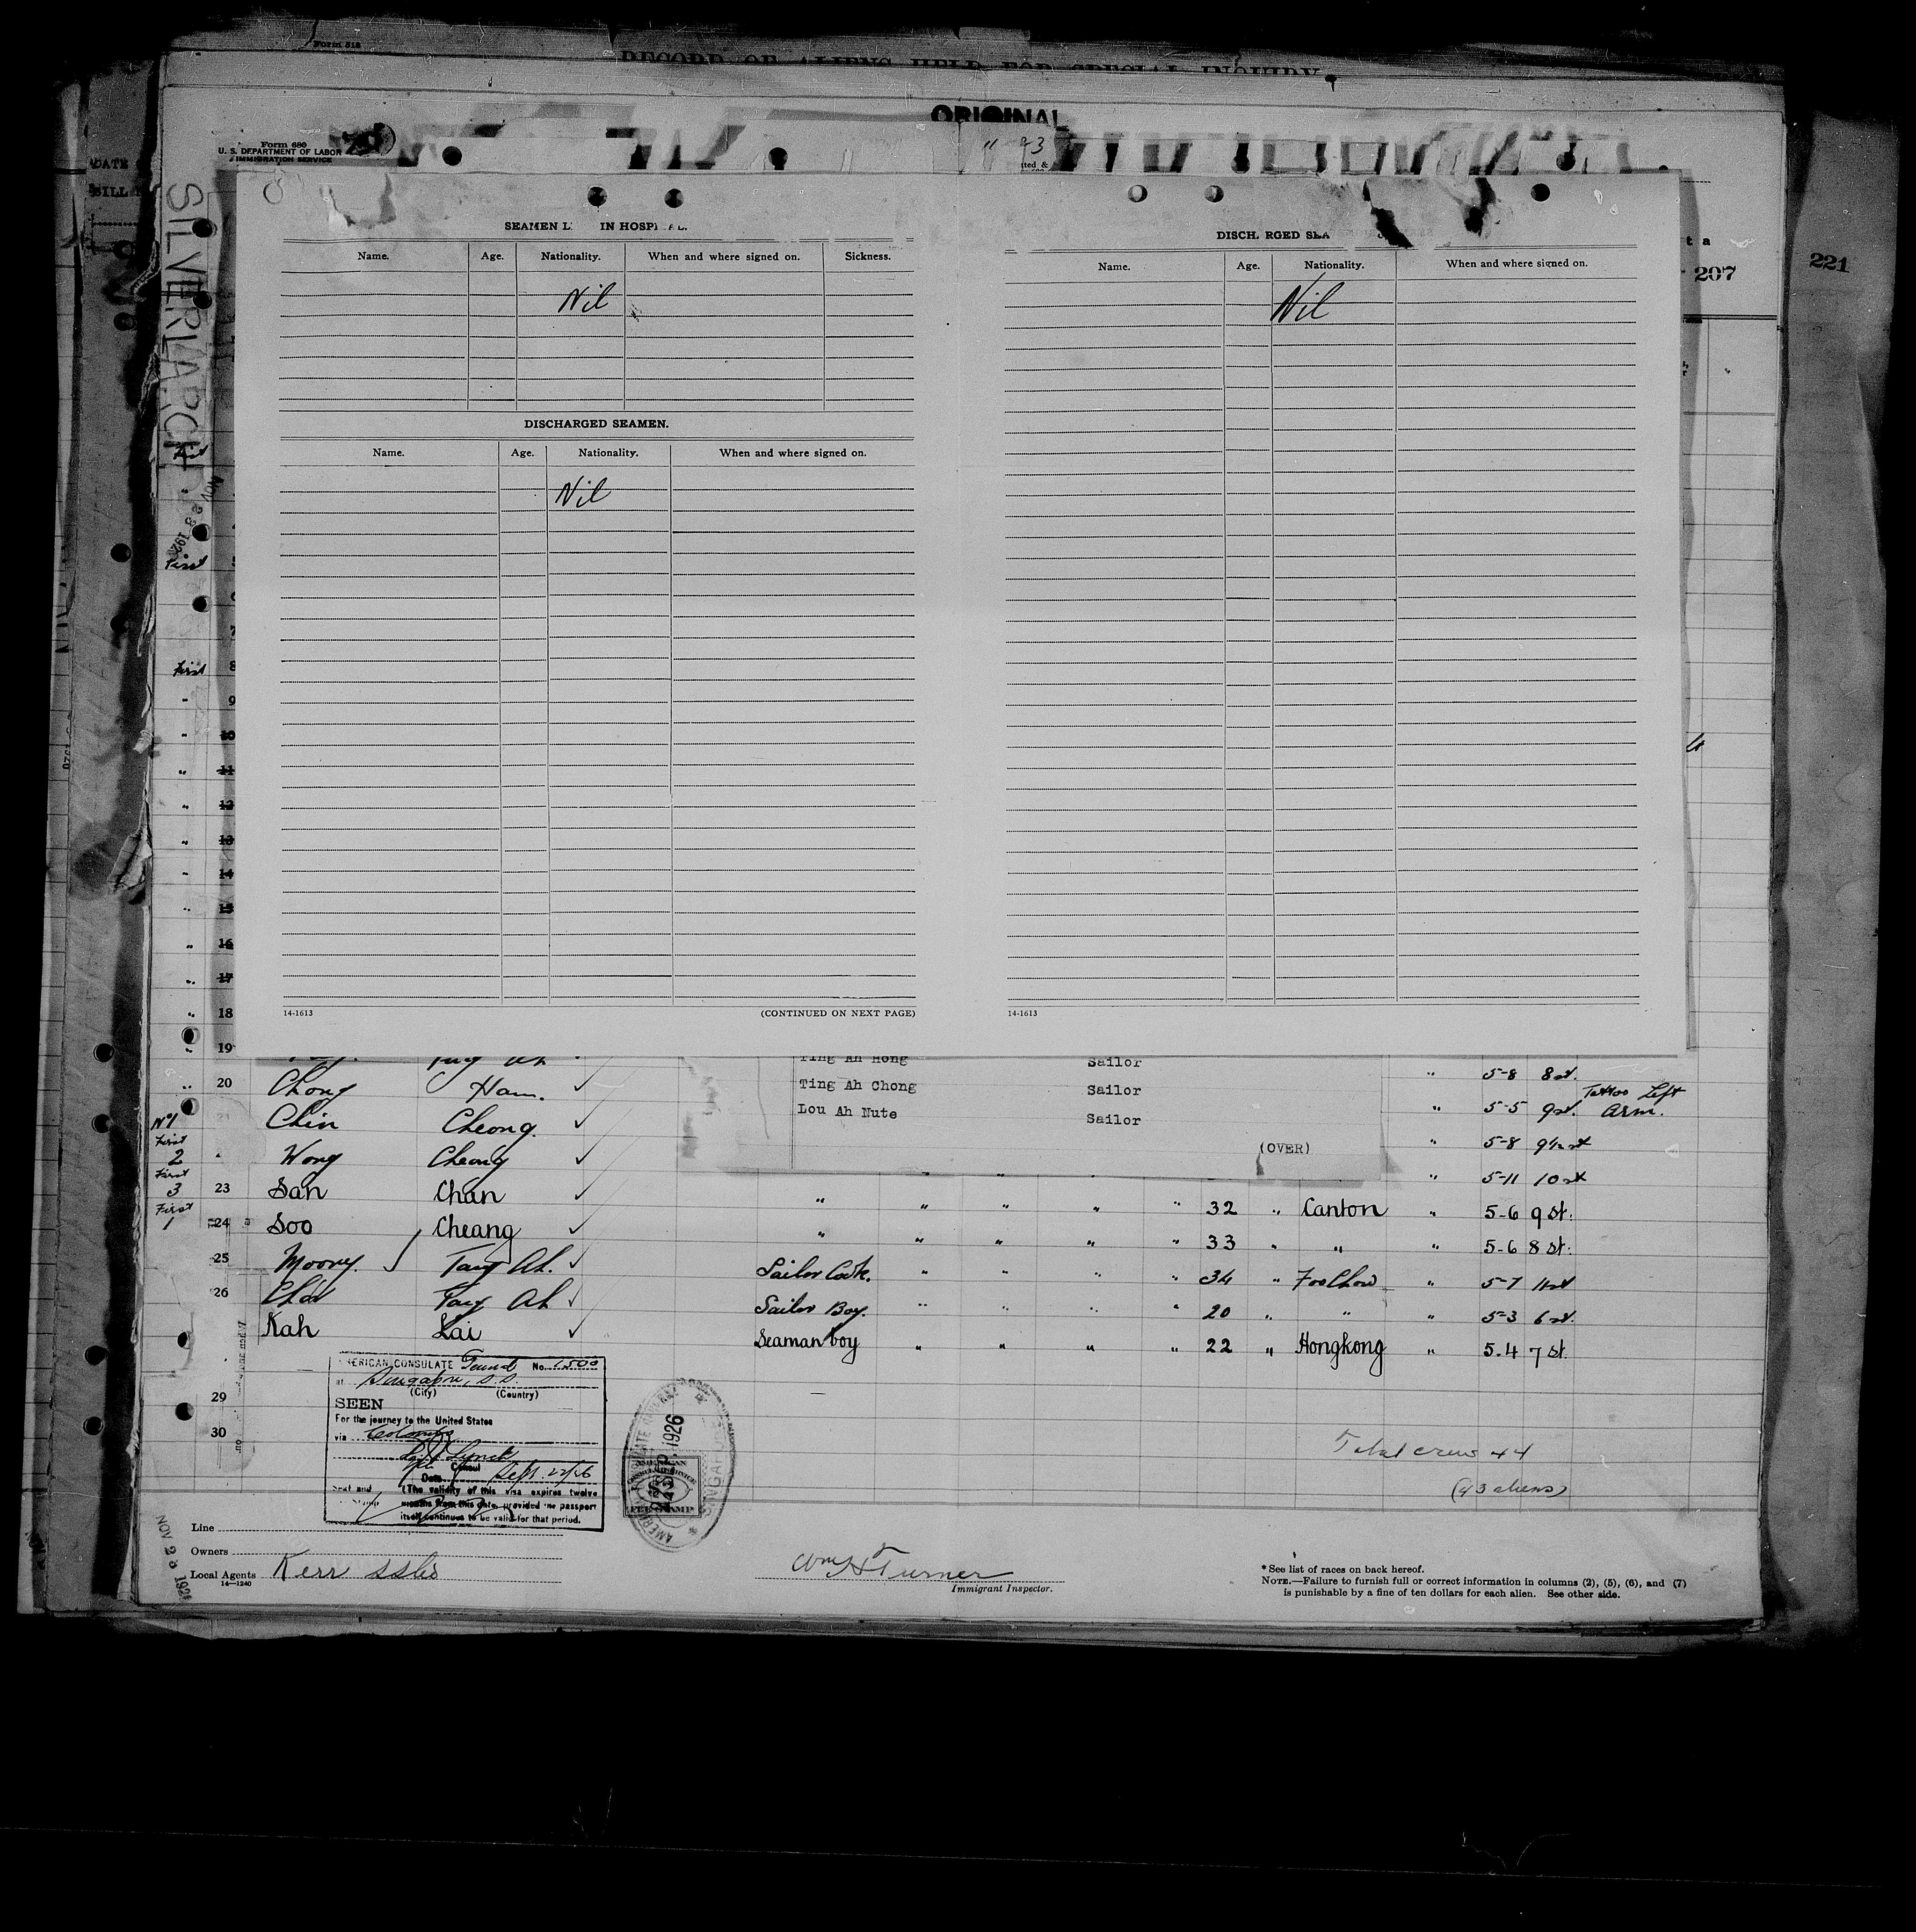 Form 512
RECORD OF ALIENS HELD FOR SPECIAL INQUIRY
ORIGINAL
Form 680
U. S. DEPARTMENT OF LABOR
IMMIGRATION SERVICE
SILVERLARCH
207
221
SEAMEN L IN HOSPI AL.
Name. Age. Nationality. When and where signed on. Sickness.
Nil
DISCHARGED SEAMEN.
Name. Age. Nationality. When and where signed on.
Nil
14-1613 (CONTINUED ON NEXT PAGE)
DISCH RGED SEA
Name. Age. Nationality. When and where signed on.
Nil
14-1613
First
First
8
9
10
11
12
13
14
15
16
17
18
19
Ting Ah Hong Sailor
20 Chong Ham. ✓ Ting Ah Chong Sailor " 5-8 8st.
No 1 21 Chin Cheong. ✓ Lou Ah Nute Sailor " 5-5 9st. Tattoo Left Arm.
First 2 Wong Cheong ✓ (OVER) " 5-8 9½st
First 3 23 San Chan ✓ " " " " " 5-11 10st
First 1 24 Soo Cheang ✓ " " " " " 32 " Canton " 5-6 9 St.
" " " " " 33 " " " 5-6 8 St.
25 Moorey. Tang Ah. ✓ Sailor Cook. " " " " 34 " FooChow " 5-7 11st
26 Choi Tang Ah ✓ Sailor Boy. " " " " 20 " " " 5-3 6st.
Kah Lai ✓ Seaman boy " " " " 22 " Hongkong " 5.4 7 St.
29
30
AMERICAN CONSULATE No. 1500
at Singapore, S.S.
(City) (Country)
SEEN
For the journey to the United States
via Colombo
Consul
Date Sept. 22/26
Seal and Stamp
(The validity of this visa expires twelve
months from this date, provided the passport
itself continues to be valid for that period.
1926
FEE STAMP
Total crew 44
(43 aliens)
Line
Owners
Local Agents Kerr SSLis
14-1240
Wm H Turner
Immigrant Inspector.
* See list of races on back hereof.
NOTE.—Failure to furnish full or correct information in columns (2), (5), (6), and (7)
is punishable by a fine of ten dollars for each alien. See other side.